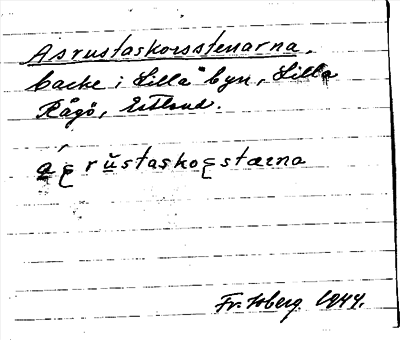 Asrustaskorsstenarna.
backe i "Lilla" byn, Lilla
Rågö, Estland.
a ʂ rŭstaskoʂstærna
Fr. Isberg 1944.